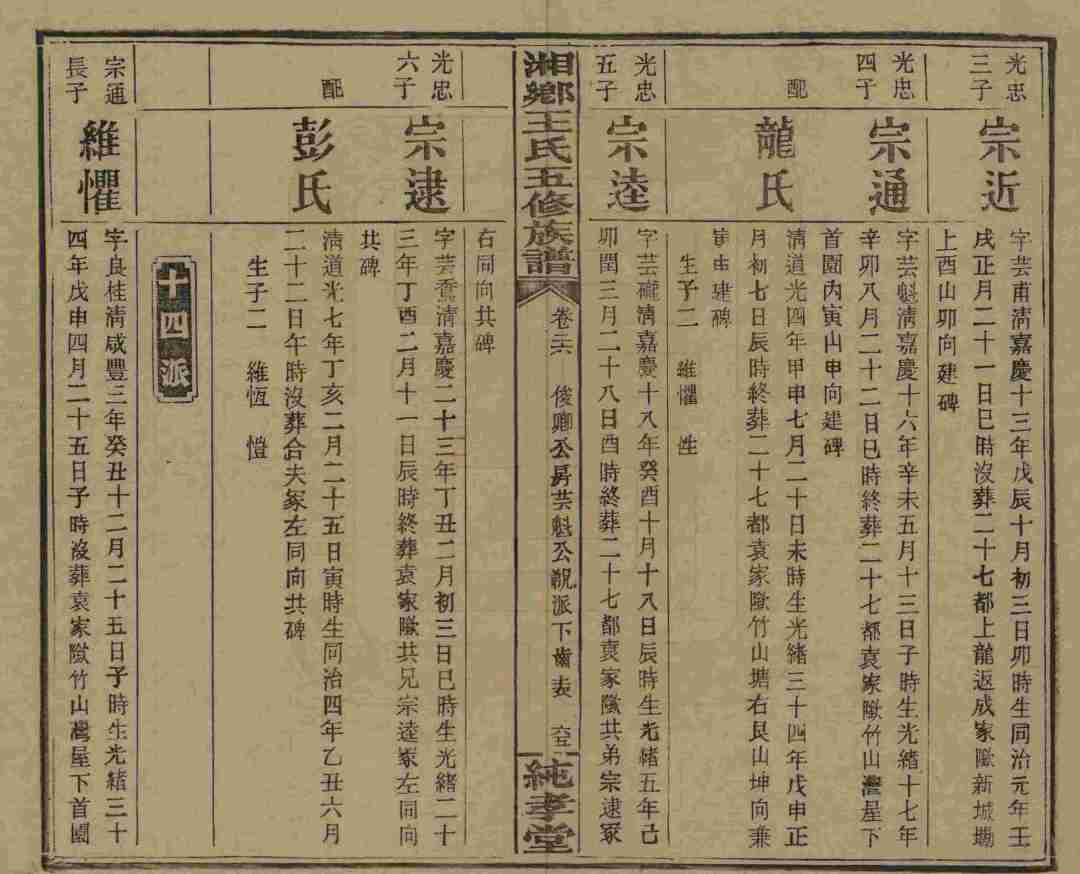 光忠
三子
宗近
字芸甫清嘉慶十三年戊辰十月初三日卯時生同治元年壬
戌正月二十一日巳時沒葬二十七都上龍返成家隞新城塝
上酉山卯向建碑
光忠
四子
宗通
字芸魁清嘉慶十六年辛未五月十三日子時生光緒十七年
辛卯八月二十二日巳時終葬二十七都袁家隞竹山灣屋下
首園內寅山申向建碑
配
龍氏
清道光四年甲申七月二十日未時生光緒三十四年戊申正
月初七日辰時終葬二十七都袁家隞竹山塘右艮山坤向兼
寅申建碑
生子二 維懼 性
光忠
五子
宗逵
字芸礲清嘉慶十八年癸酉十月十八日辰時生光緒五年己
卯閏三月二十八日酉時終葬二十七都袁家隞共弟宗逮冢
右同向共碑
湘鄉王氏五修族譜
卷三六
俊卿公房芸魁公祝派下齒表
純孝堂
光忠
六子
宗逮
字芸喬清嘉慶二十三年丁丑二月初三日巳時生光緒二十
三年丁酉二月十一日辰時終葬袁家隞共兄宗逵冢左同向
共碑
配
彭氏
清道光七年丁亥二月二十五日寅時生同治四年乙丑六月
二十二日午時沒葬合夫冢左同向共碑
生子二 維恆 愷
十四派
宗通
長子
維懼
字良桂清咸豐三年癸丑十二月二十五日子時生光緒三十
四年戊申四月二十五日子時沒葬袁家隞竹山灣屋下首園